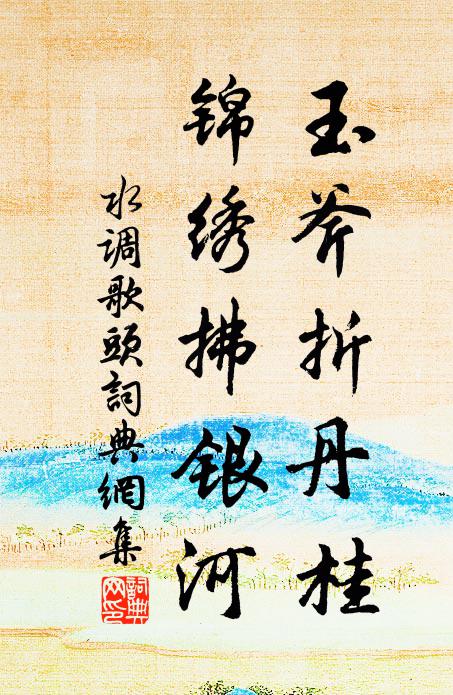 玉斧折丹桂
锦绣拂银河
水调歌头詞典網集
詞典